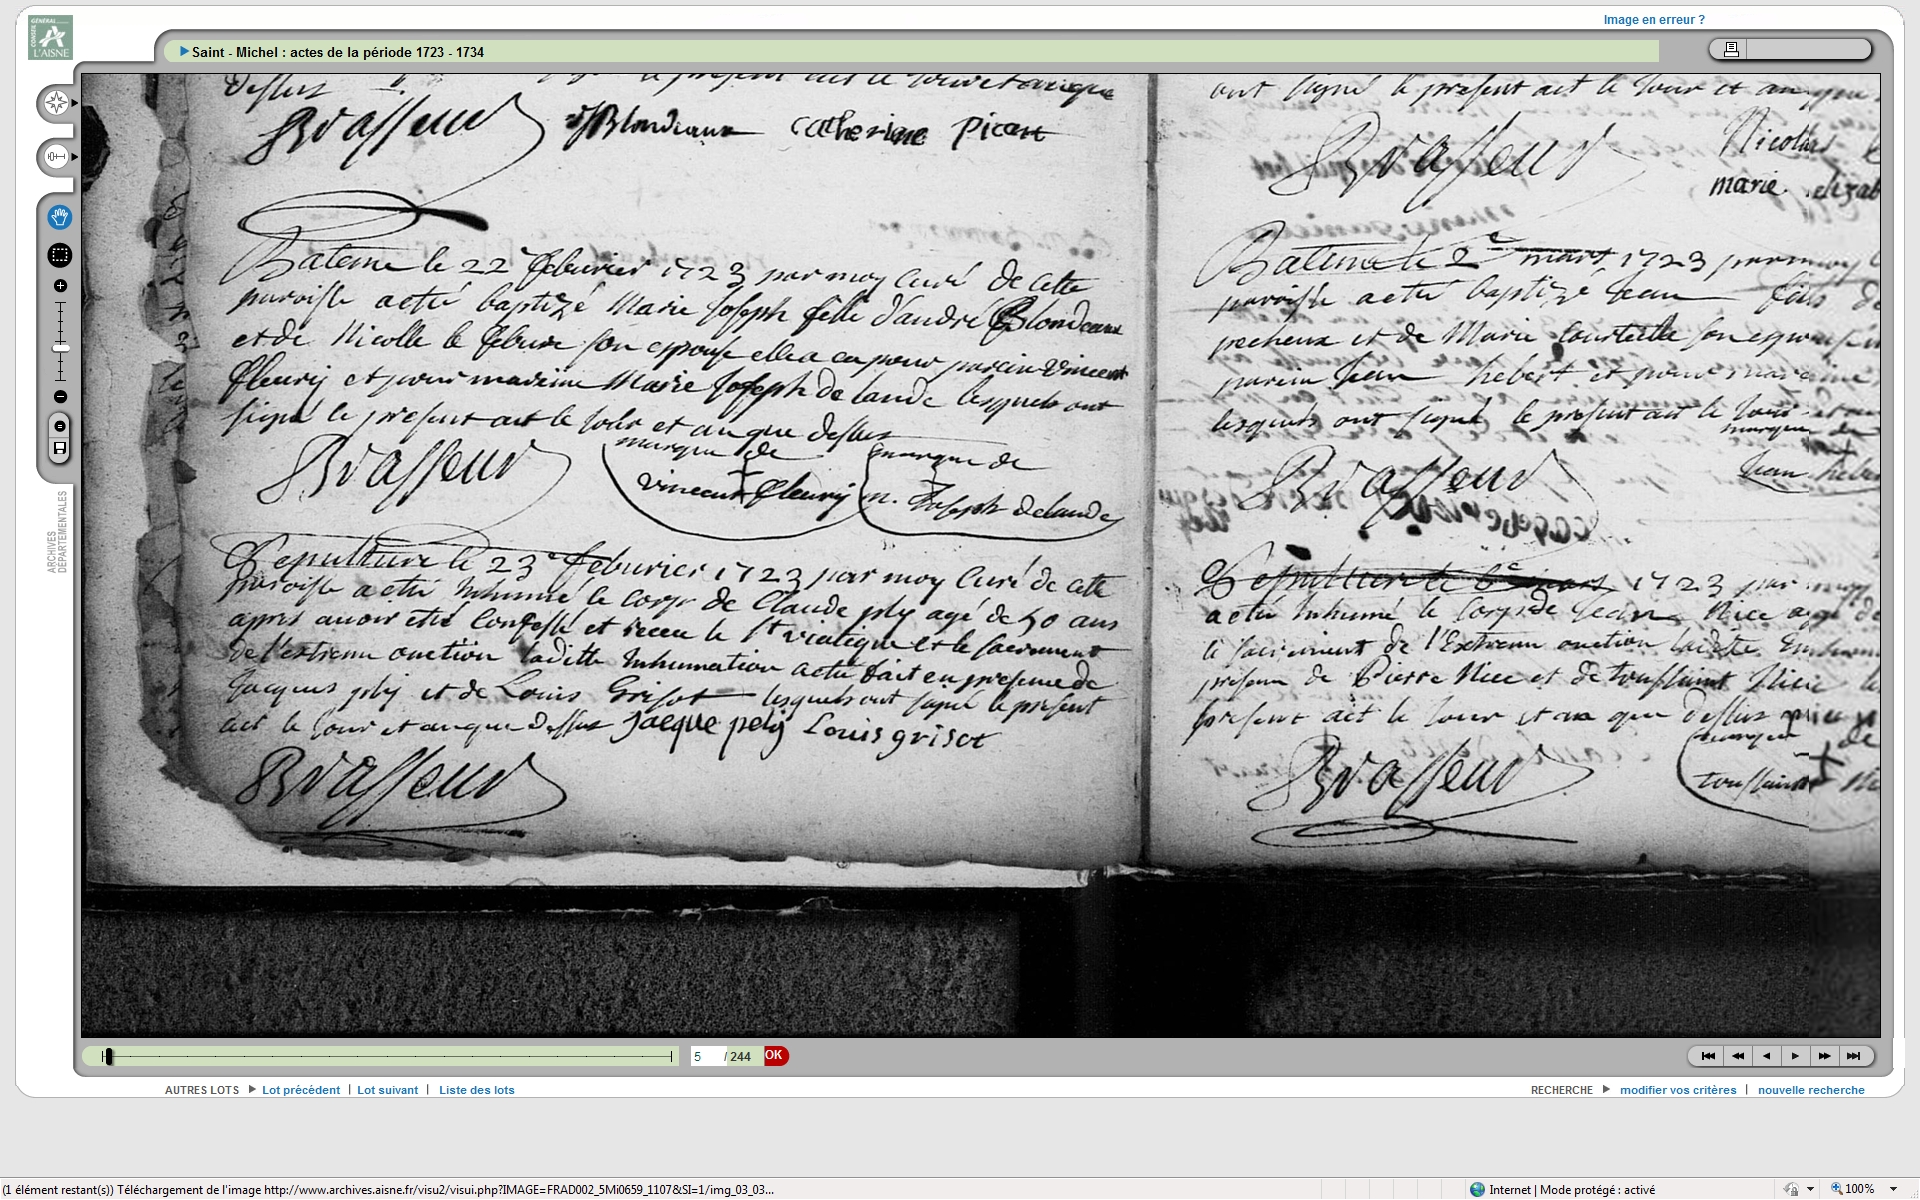 Image en erreur ?
GENERAL
CONSEIL
L'AISNE
Saint - Michel : actes de la période 1723 - 1734
dessus le present act le jour et an que
Brasseur Blondeaux catherine Picart
Bateme le 22e feburier 1723 par moy curé de cette
paroisse a eté baptizé Marie Joseph fille d'andré Blondeaux
et de Nicolle le febure son espouse elle a eu pour parein vincent
fleury et pour mareine Marie Joseph de lande lesquels ont
signé le present act le jour et an que dessus
marque de marque de
Brasseur vincent fleurij m. Joseph delande
Sepulture le 23e feburier 1723 par moy curé de cette
paroisse a eté Inhumé le corps de Claude plij agé de 50 ans
apres avoir eté confessé et receu le St viatique et le sacrement
de l'extreme onction laditte Inhumation a eté fait en presence de
Jacques plij et de Louis Grisot lesquels ont signé le present
act le jour et an que dessus jacque pelij Louis grisot
Brasseur
ont signé le present act le jour et an que
Brasseur Nicolas
marie elizab
Bateme le 2e mart 1723 par moy
paroisse a eté baptizé Jean fils de
pecheux et de Marie Courteille son espouse
parein Jean hebert et pour mareine
lesquels ont signé le present act le jour
marque de
Brasseur Jean heber
Sepulture le mars 1723 par moy
a eté Inhumé le corps de Jean Nice agé de
le sacrement de l'Extreme onction laditte
presence de Pierre Nice et de toussaint Nice
present act le jour et an que dessus
marque de
Brasseur toussaint
ARCHIVES
DÉPARTEMENTALES
5 / 244 OK
AUTRES LOTS Lot précédent | Lot suivant | Liste des lots
RECHERCHE modifier vos critères | nouvelle recherche
(1 élément restant(s)) Téléchargement de l'image http://www.archives.aisne.fr/visu2/visui.php?IMAGE=FRAD002_5Mi0659_1107&SI=1/img_03_03...
Internet | Mode protégé : activé
100%